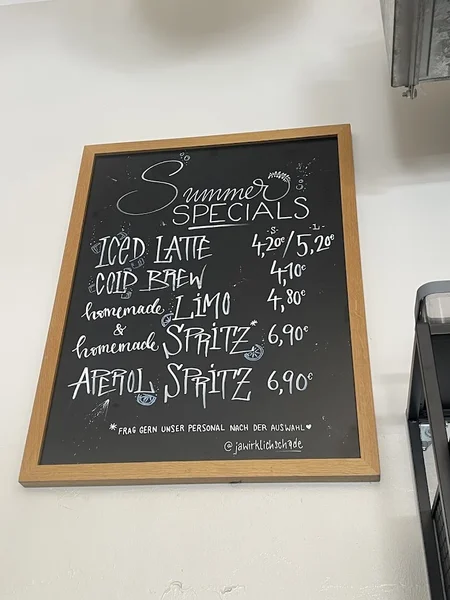 Summer
SPECIALS
S. L.
ICED LATTE 4,20€/5,20€
COLD BREW 4,10€
homemade LIMO 4,80€
&
homemade SPRITZ* 6,90€
APEROL SPRITZ 6,90€
*FRAG GERN UNSER PERSONAL NACH DER AUSWAHL♥
@jawirklichschade